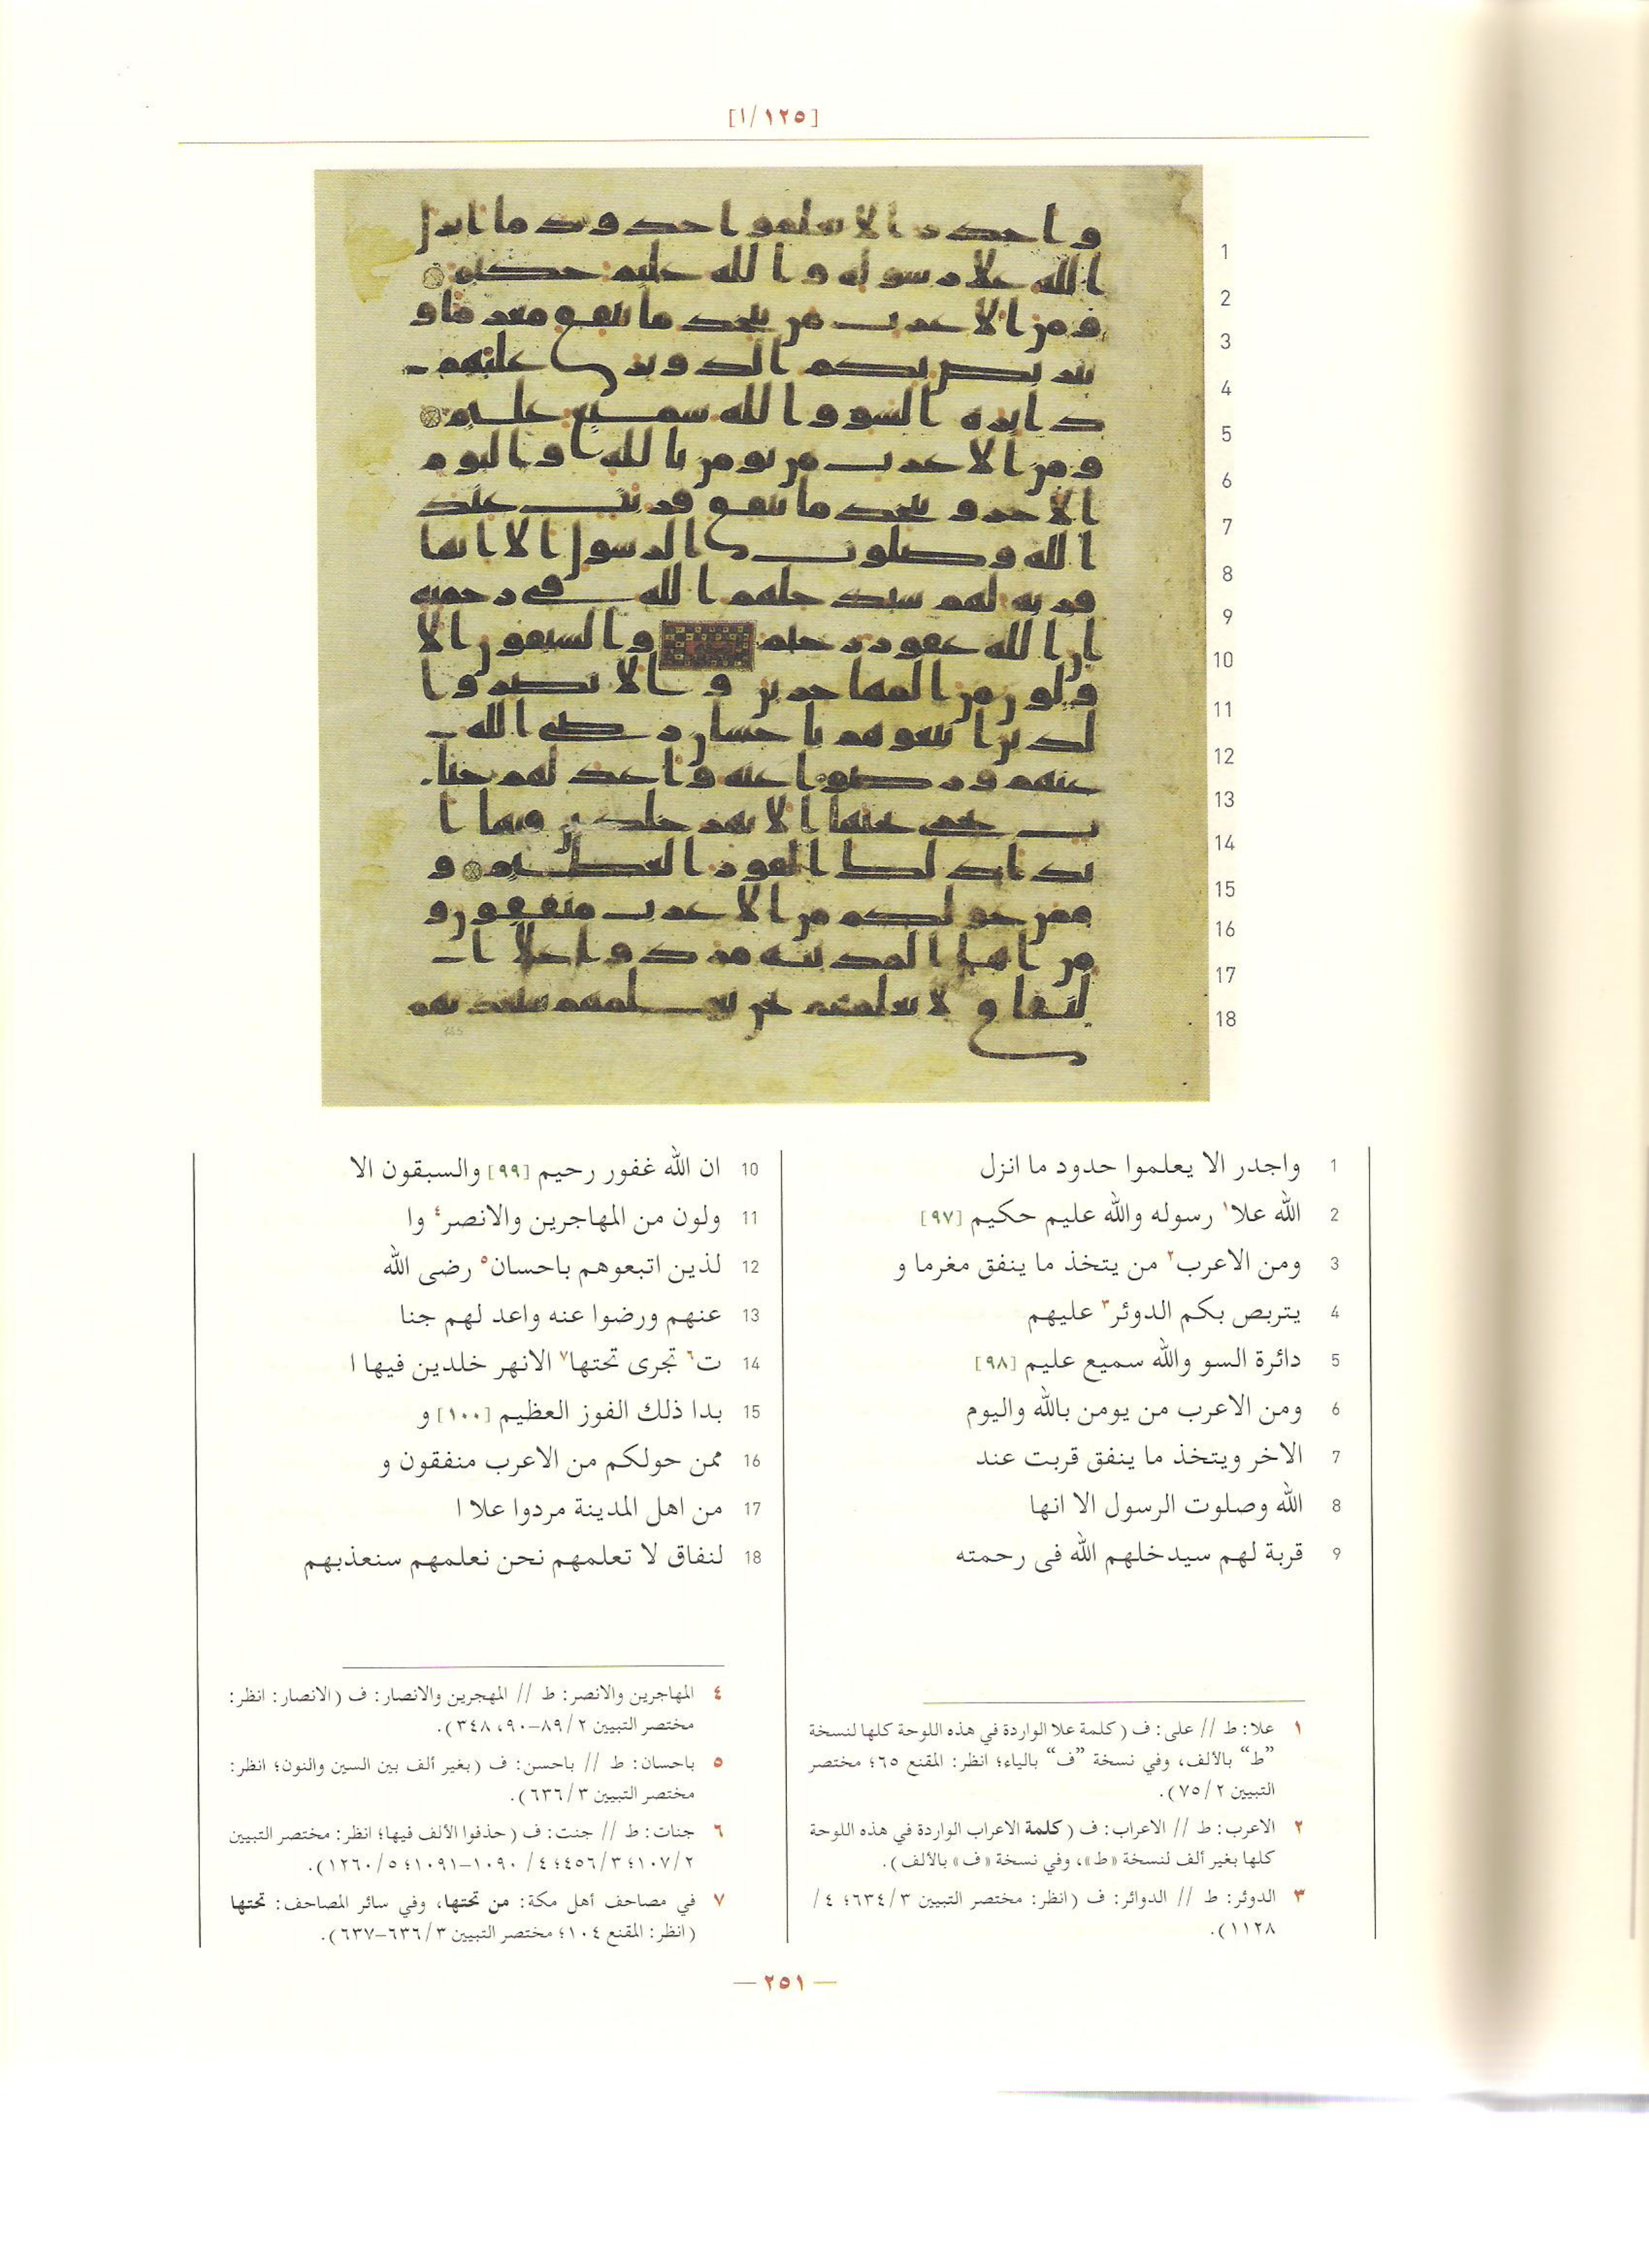 [١/١٢٥]
1
2
3
4
5
6
7
8
9
10
11
12
13
14
15
16
17
18
1 واجدر الا يعلموا حدود ما انزل
2 الله علا١ رسوله والله عليم حكيم [٩٧]
3 ومن الاعرب٢ من يتخذ ما ينفق مغرما و
4 يتربص بكم الدوئر٣ عليهم
5 دائرة السو والله سميع عليم [٩٨]
6 ومن الاعرب من يومن بالله واليوم
7 الاخر ويتخذ ما ينفق قربت عند
8 الله وصلوت الرسول الا انها
9 قربة لهم سيدخلهم الله فى رحمته
10 ان الله غفور رحيم [٩٩] والسبقون الا
11 ولون من المهاجرين والانصر٤ وا
12 لذين اتبعوهم باحسان٥ رضى الله
13 عنهم ورضوا عنه واعد لهم جنا
14 ت٦ تجرى تحتها٧ الانهر خلدين فيها ا
15 بدا ذلك الفوز العظيم [١٠٠] و
16 ممن حولكم من الاعرب منفقون و
17 من اهل المدينة مردوا علا ا
18 لنفاق لا تعلمهم نحن نعلمهم سنعذبهم
١ علا: ط // على: ف (كلمة علا الواردة في هذه اللوحة كلها لنسخة
”ط“ بالألف، وفي نسخة ”ف“ بالياء؛ انظر: المقنع ٦٥؛ مختصر
التبيين ٧٥/٢).
٢ الاعرب: ط // الاعراب: ف (كلمة الاعراب الواردة في هذه اللوحة
كلها بغير ألف لنسخة «ط»، وفي نسخة «ف» بالألف).
٣ الدوئر: ط // الدوائر: ف (انظر: مختصر التبيين ٦٣٤/٣؛ ٤/
١١٢٨).
٤ المهاجرين والانصر: ط // المهجرين والانصار: ف (الانصار: انظر:
مختصر التبيين ٨٩/٢-٩٠، ٣٤٨).
٥ باحسان: ط // باحسن: ف (بغير ألف بين السين والنون؛ انظر:
مختصر التبيين ٦٣٦/٣).
٦ جنات: ط // جنت: ف (حذفوا الألف فيها؛ انظر: مختصر التبيين
١٠٧/٢؛ ٤٥٦/٣؛ ٤/ ١٠٩٠-١٠٩١؛ ١٢٦٠/٥).
٧ في مصاحف أهل مكة: من تحتها، وفي سائر المصاحف: تحتها
(انظر: المقنع ١٠٤؛ مختصر التبيين ٦٣٦/٣-٦٣٧).
— ٢٥١ —